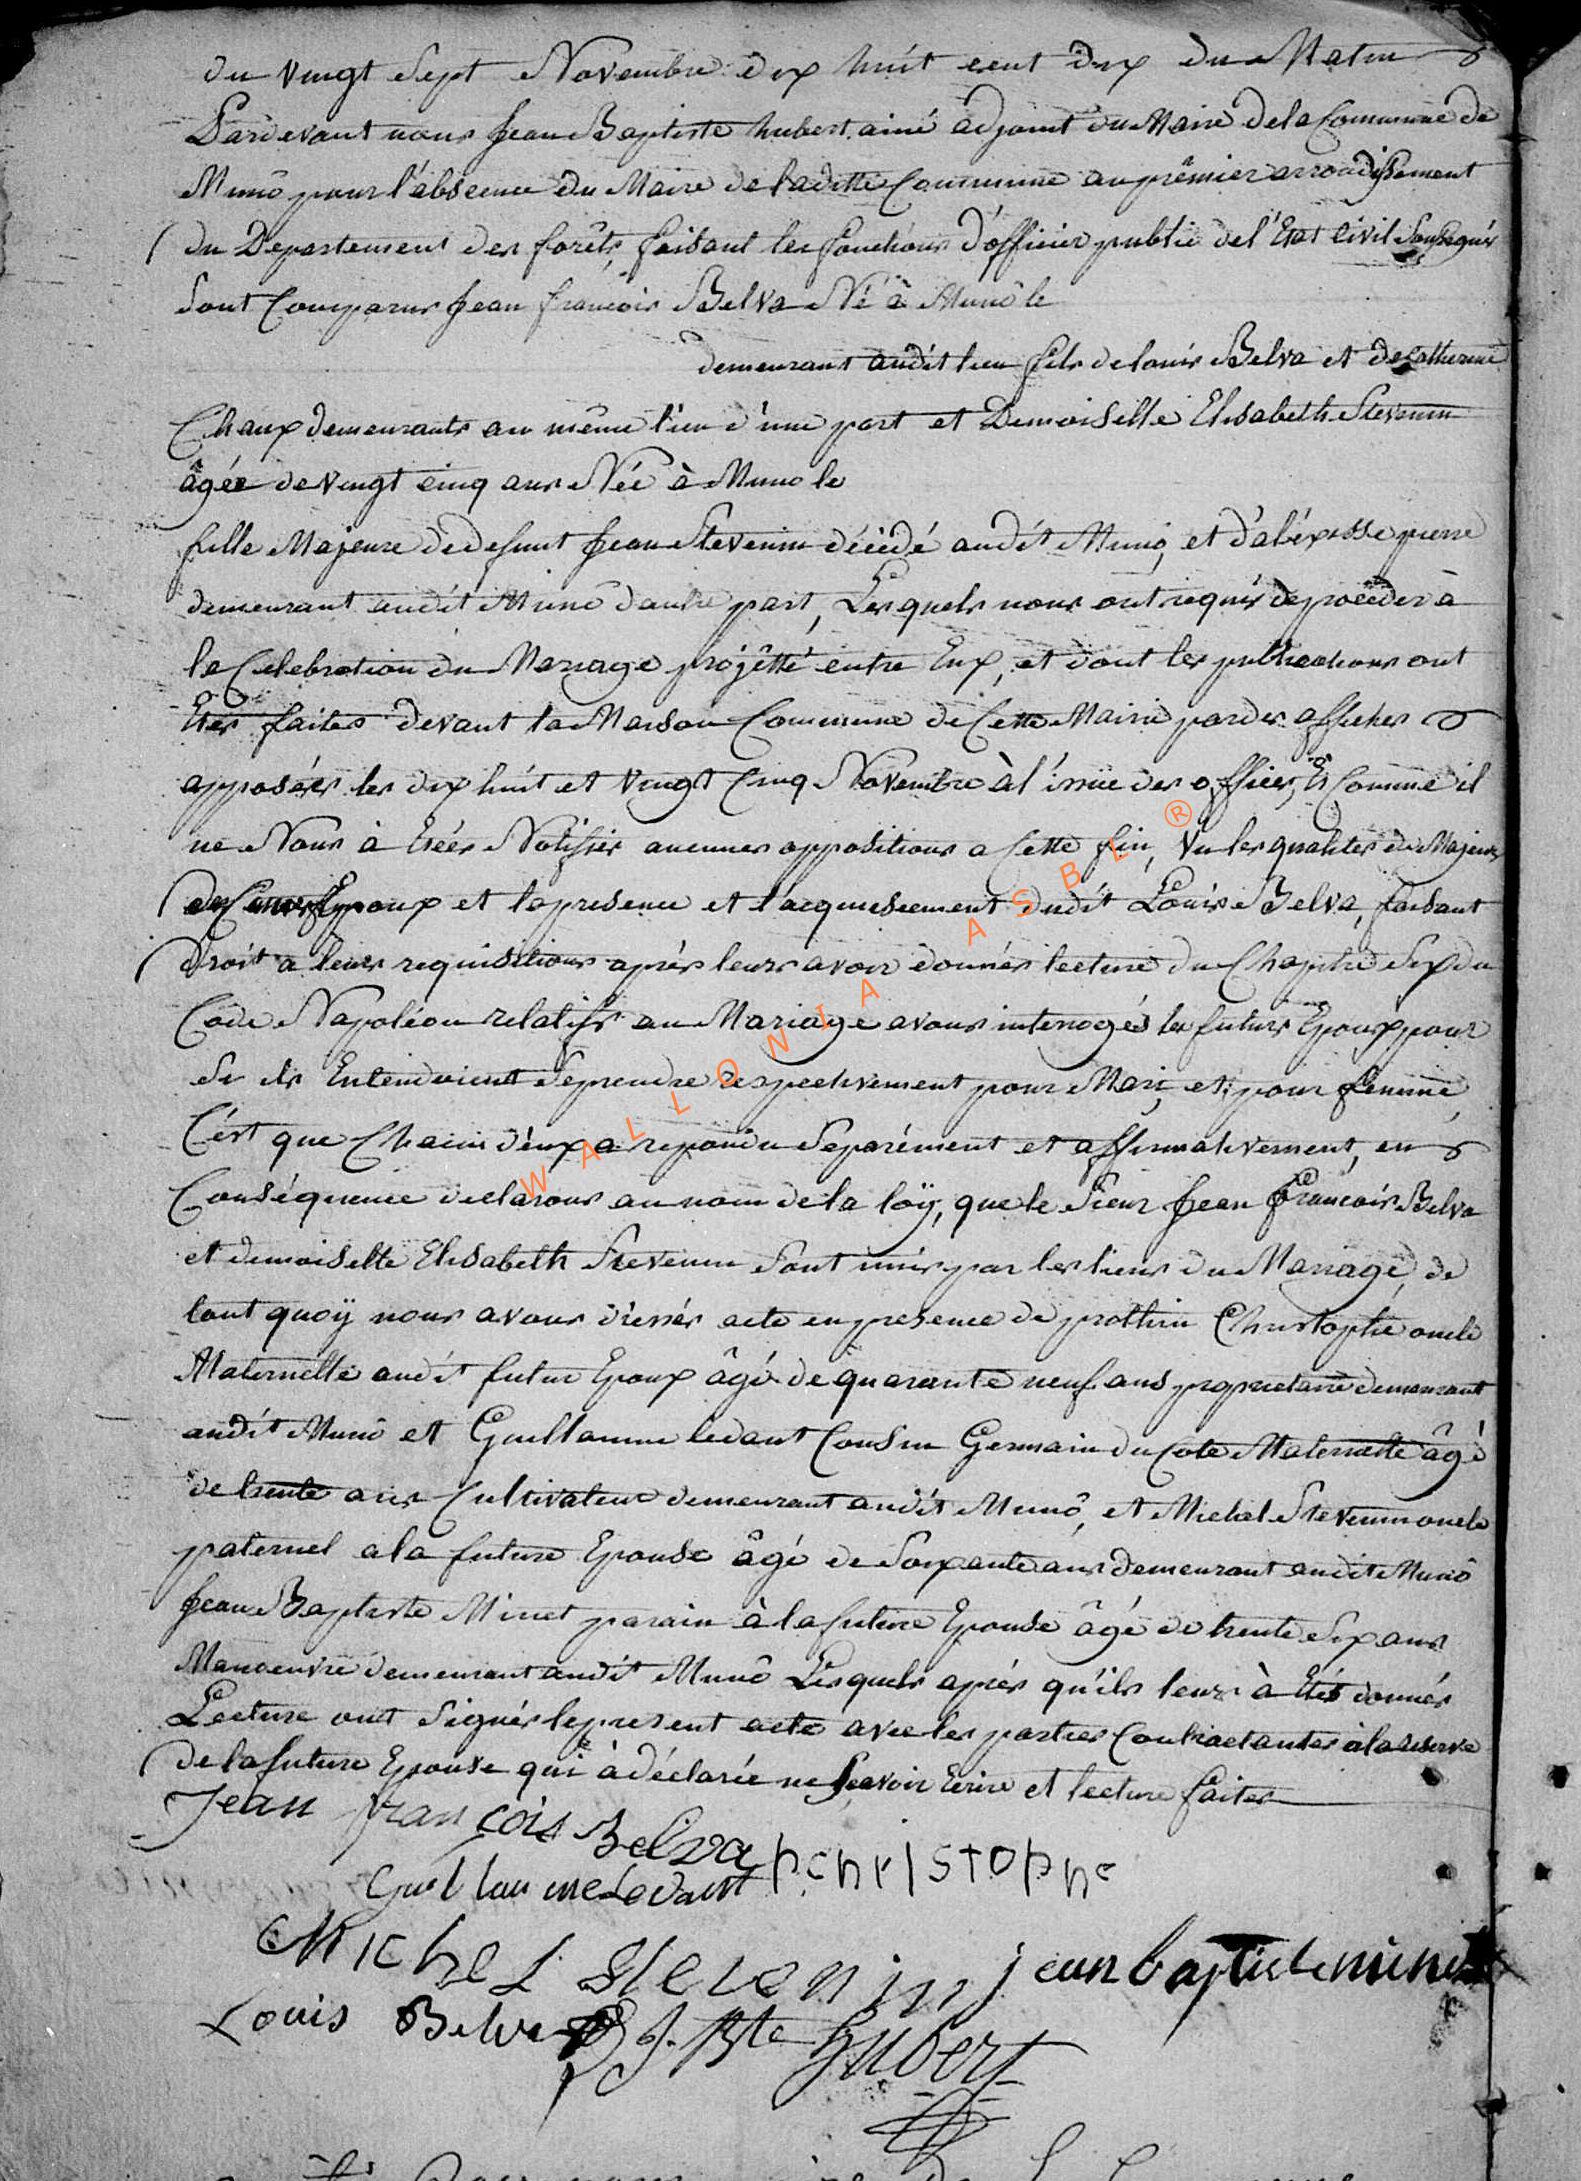 du vingt Sept Novembre dix huit cent dix du Matin
Pardevant nous Jean Baptiste hubert ainé adjoint du Maire dela Commune de
Muno pour l'absence du Maire de laditte Commune au prémier arrondissement
du Departement des forêts, faisant les fonctions d'officier public del'Etat Civil Soussignés
Sont Comparus Jean francois Belva Né à Munô le
demeurant audit lieu fils delouis Belva et de Catherine
Chaux demeurants au même lieu d'une part et Demoiselle Elisabeth Stevenin
âgée de vingt cinq ans Née à Muno le
fille Majeure dedefunt Jean Stevenin décédé audit Muno, et d' pierre
demeurant audit Munô dautre part, Lesquels nous ont requis deproceder à
la Celebration du Mariage projêtté entre Eux, et dont les publications ont
Etés faites devant la Maison Commune de Cette Mairie par des affiches
apposées les dix huit et vingt Cinq Novembre à l'issüe des offices, Et Comme il
ne Nous à Etées Notifiés aucunes oppositions a Cette fin, Vu les qualités de Majeurs
Epoux et la presence et l'acquiescement dudit Louis Belva, faisant
droit a leurs requisitions après leurs avoir donnés lecture du Chapitre Six du
Code Napoléon relatifs au Mariage avons interrogés les futurs Epoux pour
Si ils Entendoient Seprendre respectivement pour Mari, et pour femme,
C'ést que Chacun d'eux a repondu Separément et affirmativement, en
Conséquence declarons au nom de la loÿ, que le Sieur Jean François Belva
et demoiselle Elisabeth Stevenin Sont unis par les liens du Mariage, de
tout quoÿ nous avons dressés acte en presence de Christophe oncle
Maternelle audit futur Epoux âgé de quarante neuf ans proprietaire demeurant
audit Munô et Guillaume ledant Cousin Germain du Coté Maternelle âgé
de trente ans Cultivateur demeurant audit Munô, et Michel Stevenin oncle
paternel ala future Epouse âgé de Soixante ans demeurant audit Munô
Jean Baptiste Minet parain à la future Epouse âgé de trente Six ans
Manoeuvre demeurant audit Munô Lesquels après qu'ils leurs à Etés donnés
Lecture ont Signés le present acte avec les parties Contractantes àla reserve
de la future Epouse qui à déclarée ne Scavoir Ecrire et lecture faites
Jean françois Belva
Guillaume Ledant pchristophe
Michel stevenin jean baptiste minet
Louis Belva J. Bte Hubert
WALLONIA ASBL ®